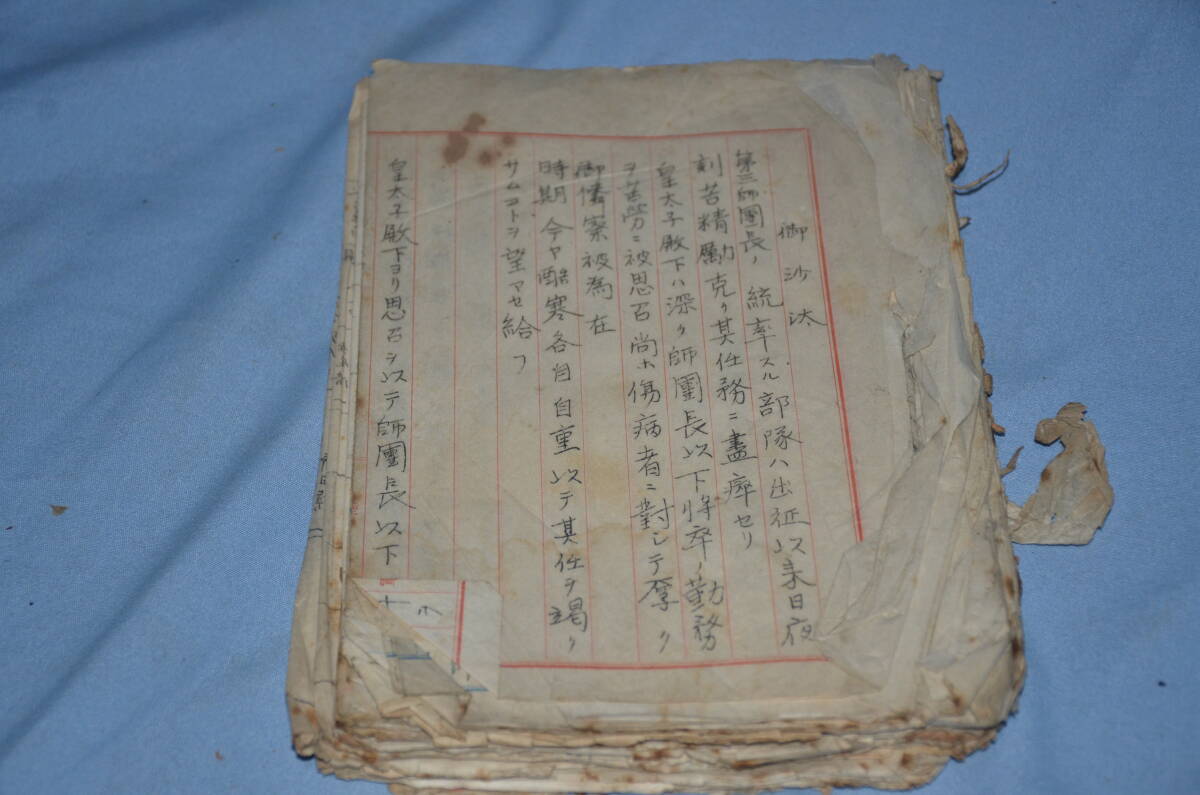 御沙汰
第三師團長ノ統率スル部隊ハ出征以来日夜
刻苦精勵克ク其任務ニ盡瘁セリ
皇太子殿下ハ深ク師團長以下将卒ノ勤務
ヲ苦勞ニ被思召尚ホ傷病者ニ對シテ厚ク
御憐察被為在
時期今ヤ酷寒各自自重以テ其任ヲ竭ク
サムコトヲ望マセ給フ
皇太子殿下ヨリ思召ヲ以テ師團長以下